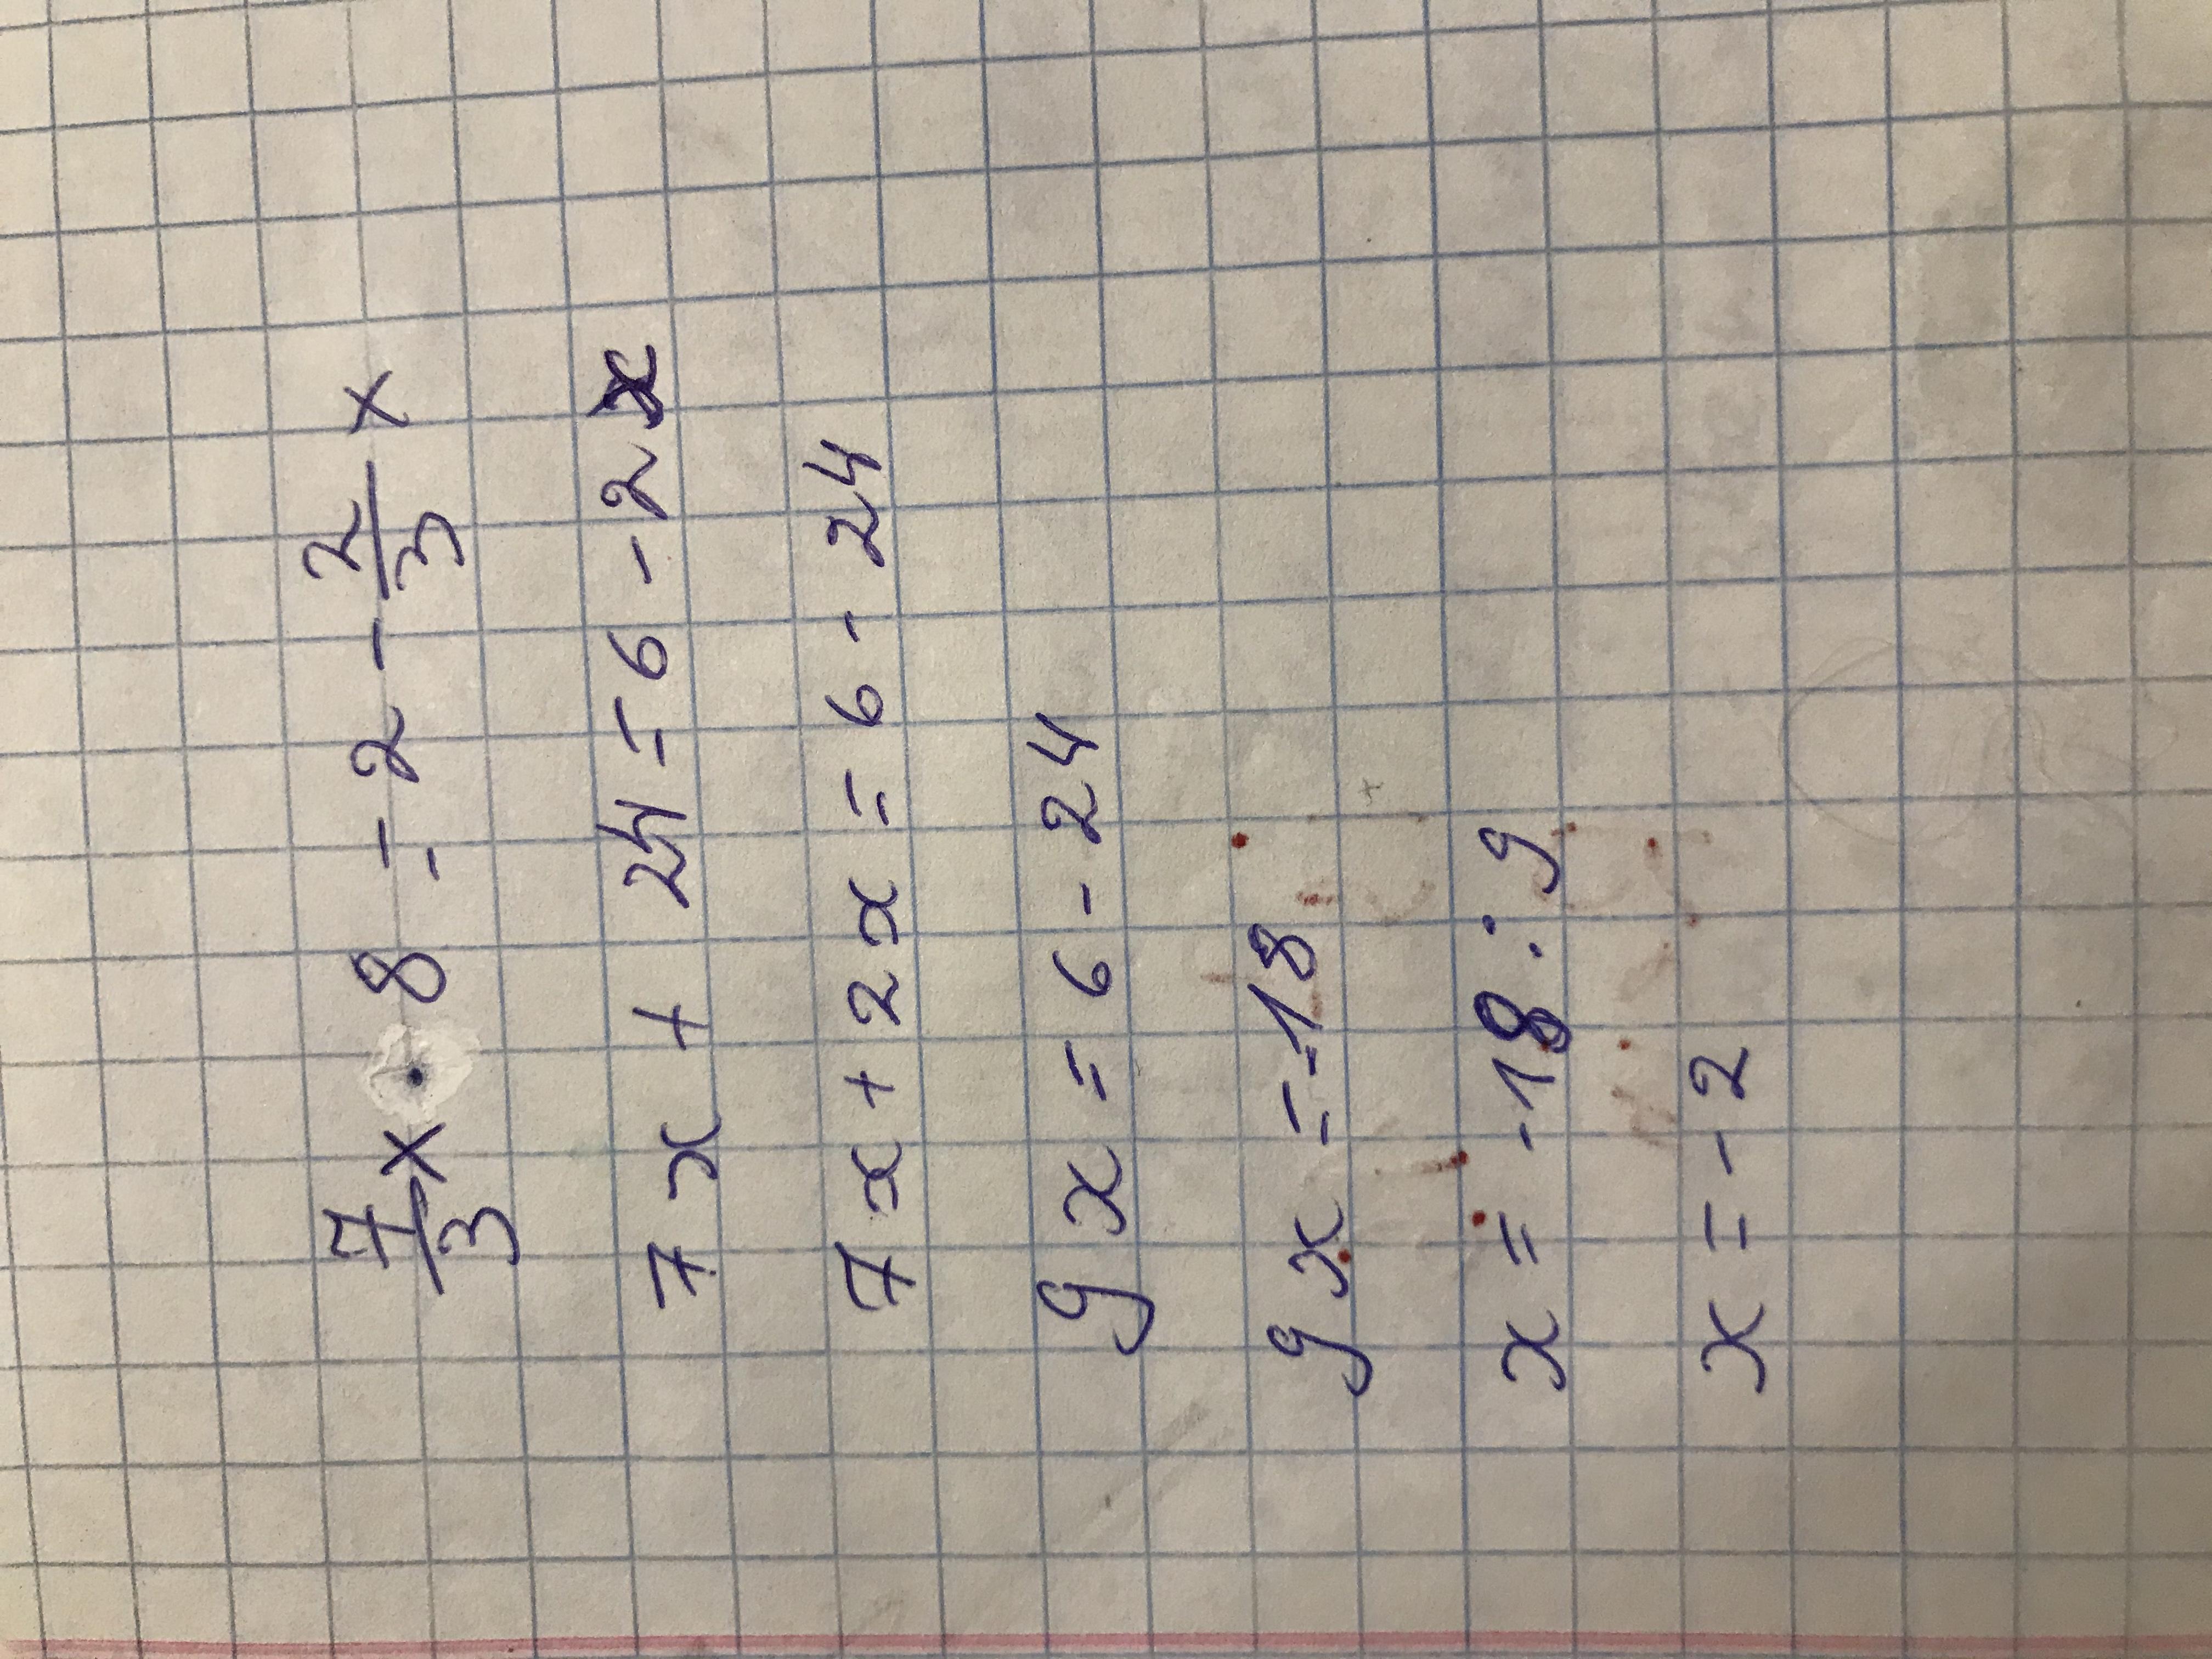 7/3 x · 8 = 2 - 2/3 x
7x + 24 = 6 - 2x
7x + 2x = 6 - 24
9x = 6 - 24
9x = -18
x = -18 : 9
x = -2